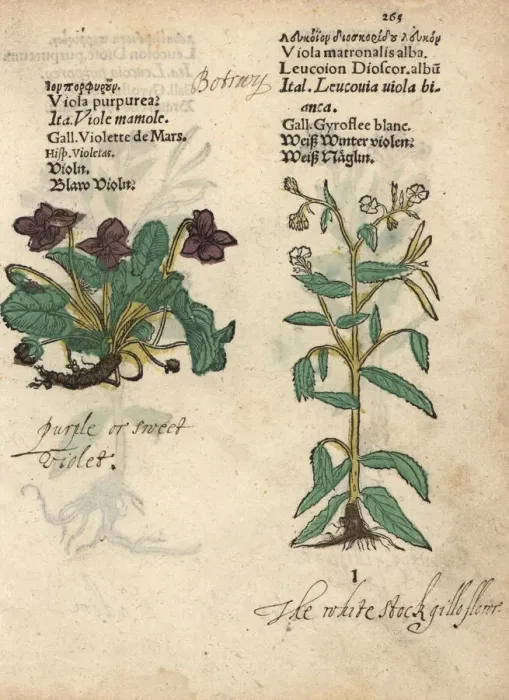 265
Ἰον πορφυροῦν.
Viola purpurea?
Ita. Viole mamole.
Gall. Violette de Mars.
Hisp. Violetas.
Violn.
Blaw Violn?
purple or sweet
Violet.
λουκόϊον διοσκορίδου λουκόν
Viola matronalis alba.
Leucoion Dioscor. albũ
Ital. Leucouia uiola bi-
anca.
Gall. Gyroflee blanc.
Weiß Winter violen?
Weiß Nägln.
1
The white stock gilloflower